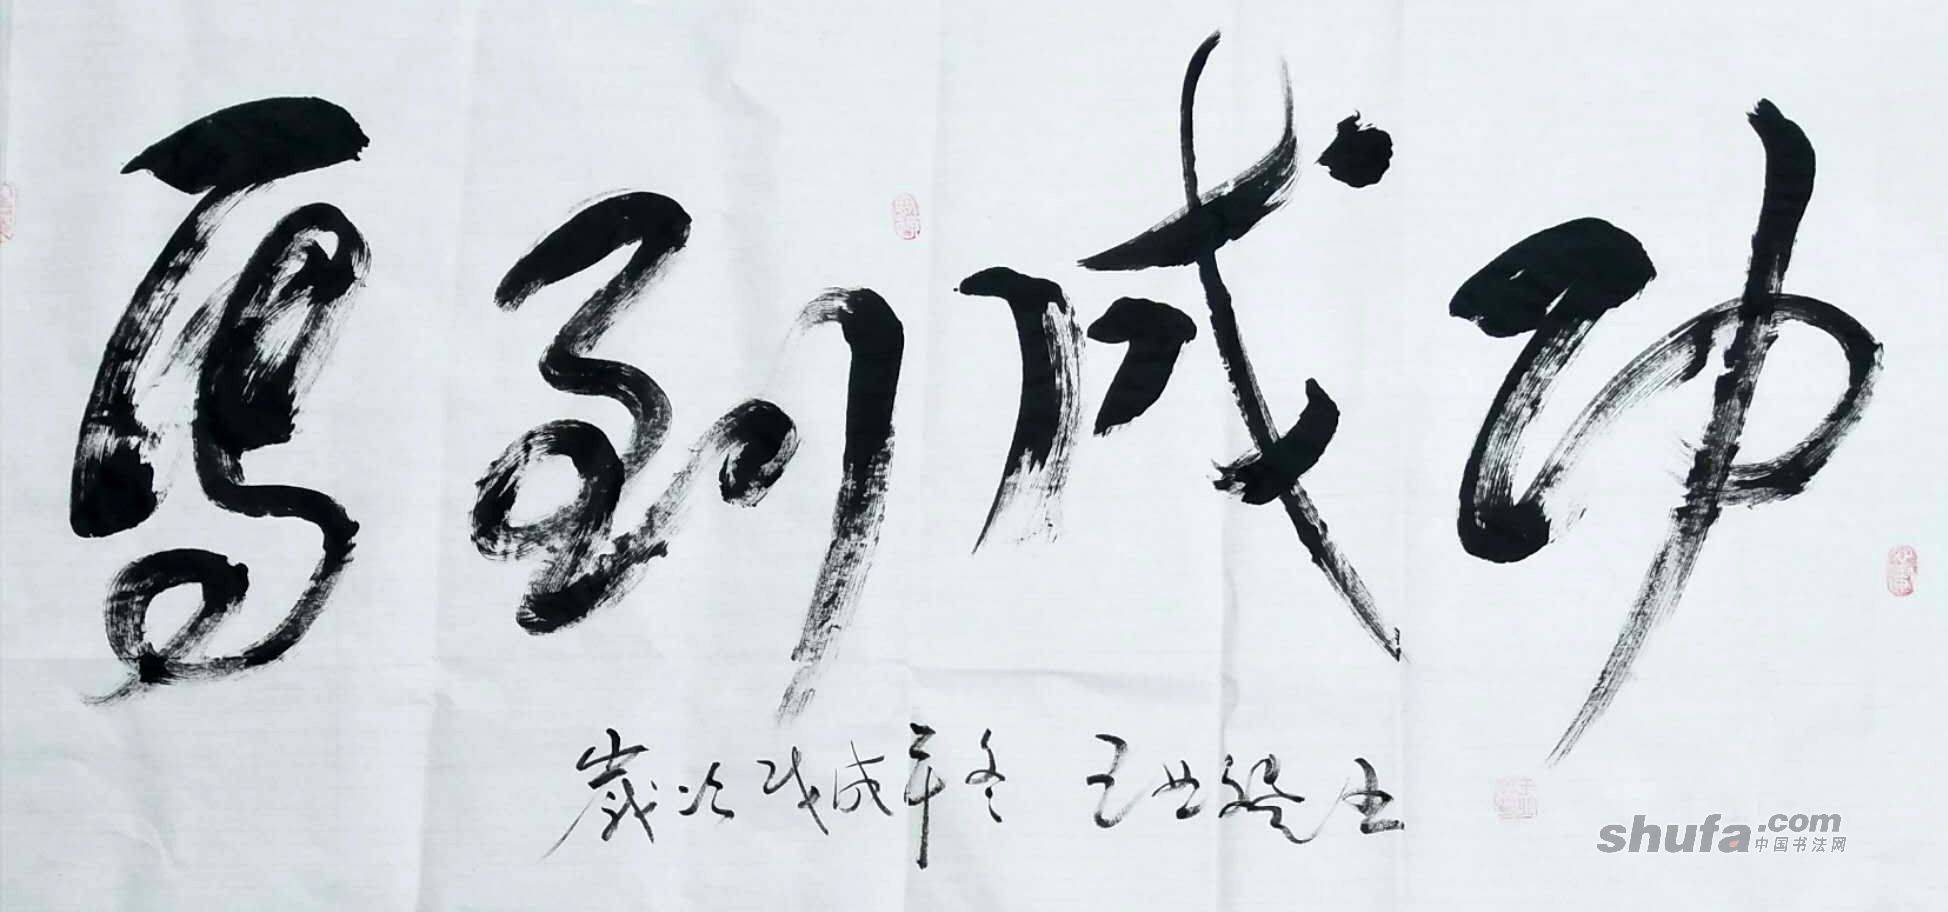 馬到成功
歲次戊戌年冬 王世 书
shufa.com
中国书法网